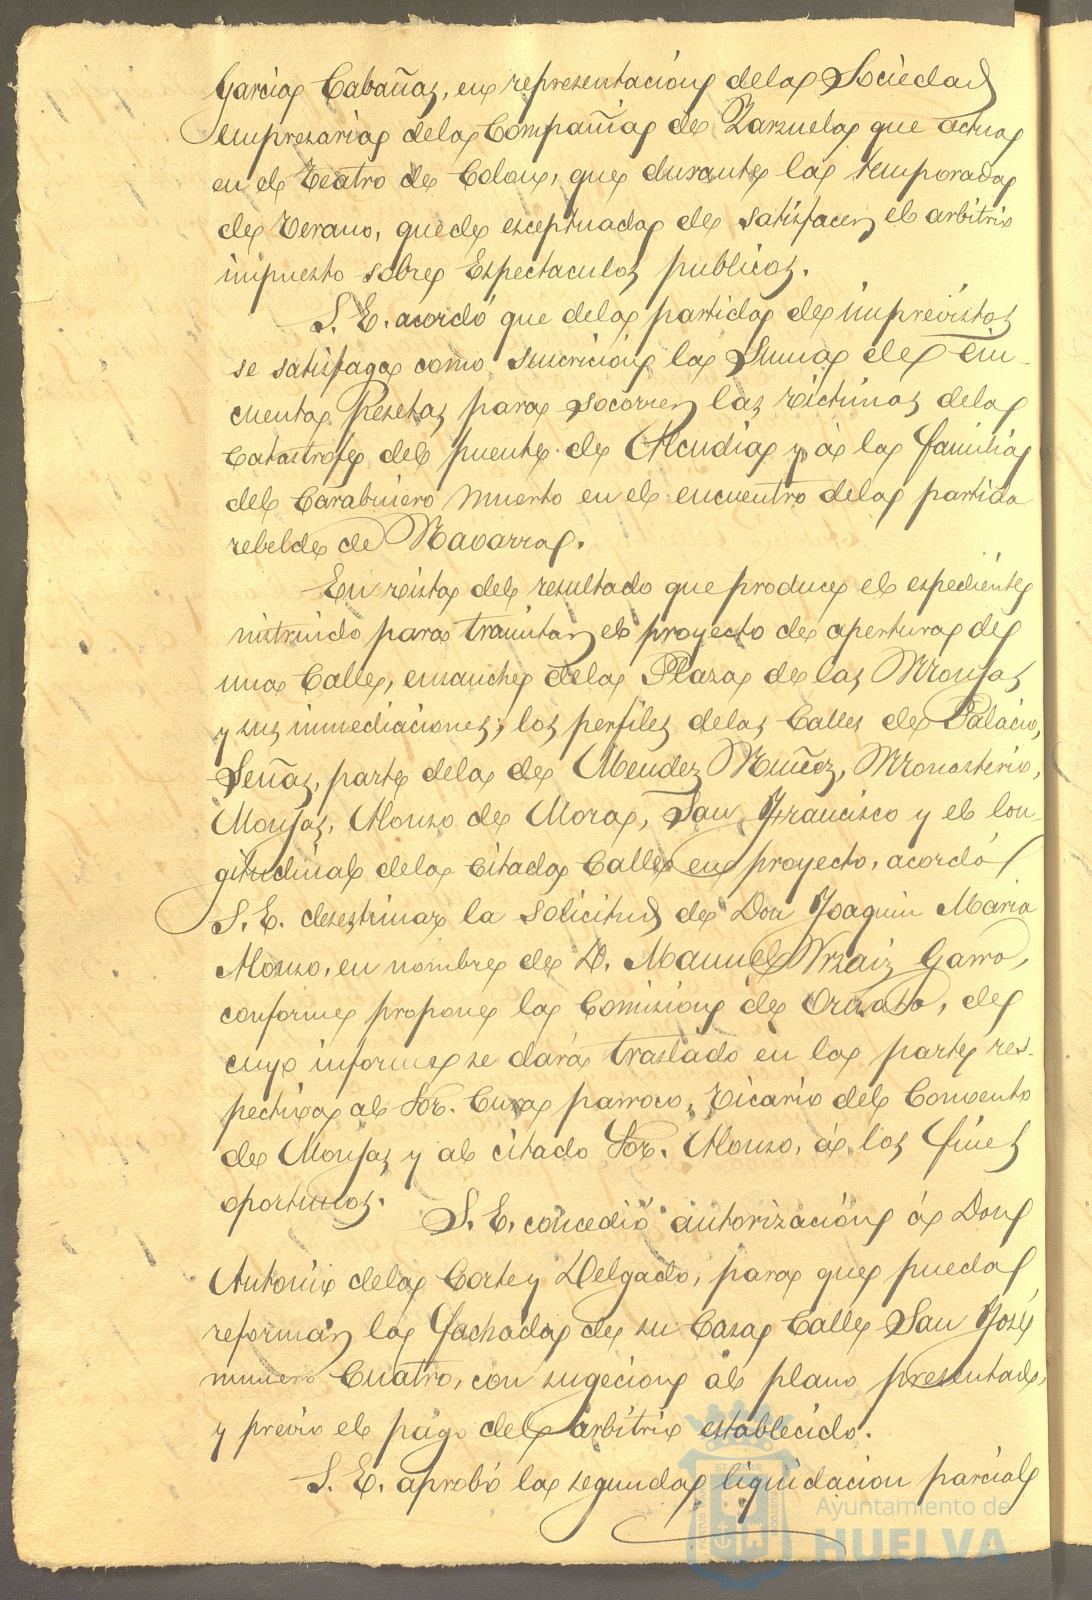 Garcia Cabañas, en representación de la Sociedad
empresaria de la Compañia de Zarzuela que actua
en el Teatro de Colon, que durante la temporada
de Verano, quede esceptuada de satisfacer el arbitrio
impuesto sobre Espectaculos publicos.
S. E. acordó que de la partida de imprevistos
se satisfaga como suscricion la Suma de Cin-
cuenta Pesetas para socorrer las victimas de la
Catastrofe del puente de Alcudia y á la familia
del Carabinero muerto en el encuentro de la partida
rebelde de Navarra.
En vista del resultado que produce el espediente
instruido para tramitar el proyecto de apertura de
una Calle, ensanche de la Plaza de las Monjas
y sus inmediaciones, los perfiles de las Calles de Palacio,
Señas, parte de la de Mendez Nuñez, Monasterio,
Monjas, Alonso de Mora, San Francisco y el lon-
gitudinal de la citada Calle en proyecto, acordó
S. E. desestimar la solicitud de Don Joaquin Maria
Alonso, en nombre de D. Manuel Urzaiz Garro,
conforme propone la Comision de Ornato, de
cuyo informe se dará traslado en la parte res-
pectiva al Sor. Cura parroco, Vicario del Convento
de Monjas y al citado Sor. Alonso, á los fines
oportunos.
S. E. concedió autorización á Don
Antonio de la Corte y Delgado, para que pueda
reformar la fachada de su Casa Calle San José
numero Cuatro, con sugecion al plano presentado,
y previo el pago del arbitrio establecido.
S. E. aprobó la segunda liquidacion parcial
Ayuntamiento de
HUELVA